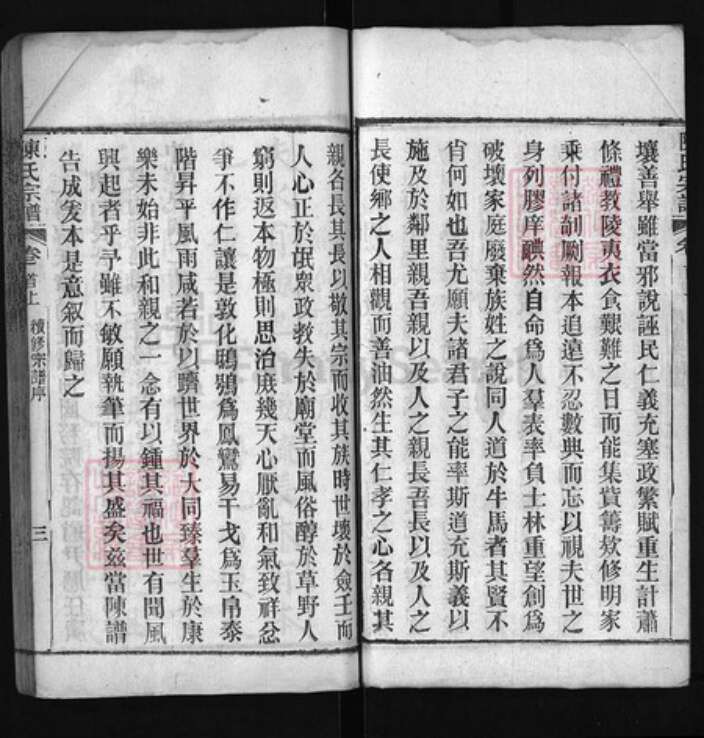 壞善舉雖當邪說誣民仁義充塞政繁賦重生計蕭
條禮教陵夷衣食艱難之日而能集貲籌欵修明家
乘付諸剞劂報本追遠不忍數典而忘以視夫世之
身列膠庠靦然自命爲人羣表率負士林重望創爲
破壞家庭廢棄族姓之說同人道於牛馬者其賢不
肖何如也吾尤願夫諸君子之能率斯道充斯義以
施及於鄰里親吾親以及人之親長吾長以及人之
長使鄉之人相觀而善油然生其仁孝之心各親其
親各長其長以敬其宗而收其族時世壞於僉壬而
人心正於氓衆政教失於廟堂而風俗醇於草野人
窮則返本物極則思治庶幾天心厭亂和氣致祥忿
爭不作仁讓是敦化鴟鴞爲鳳鸞易干戈爲玉帛泰
階昇平風雨咸若於以躋世界於大同臻羣生於康
樂未始非此和親之一念有以鍾其福也世有聞風
興起者乎予雖不敏願執筆而揚其盛矣茲當陳譜
告成爰本是意叙而歸之
陳氏宗譜
卷首上
續修宗譜序
三